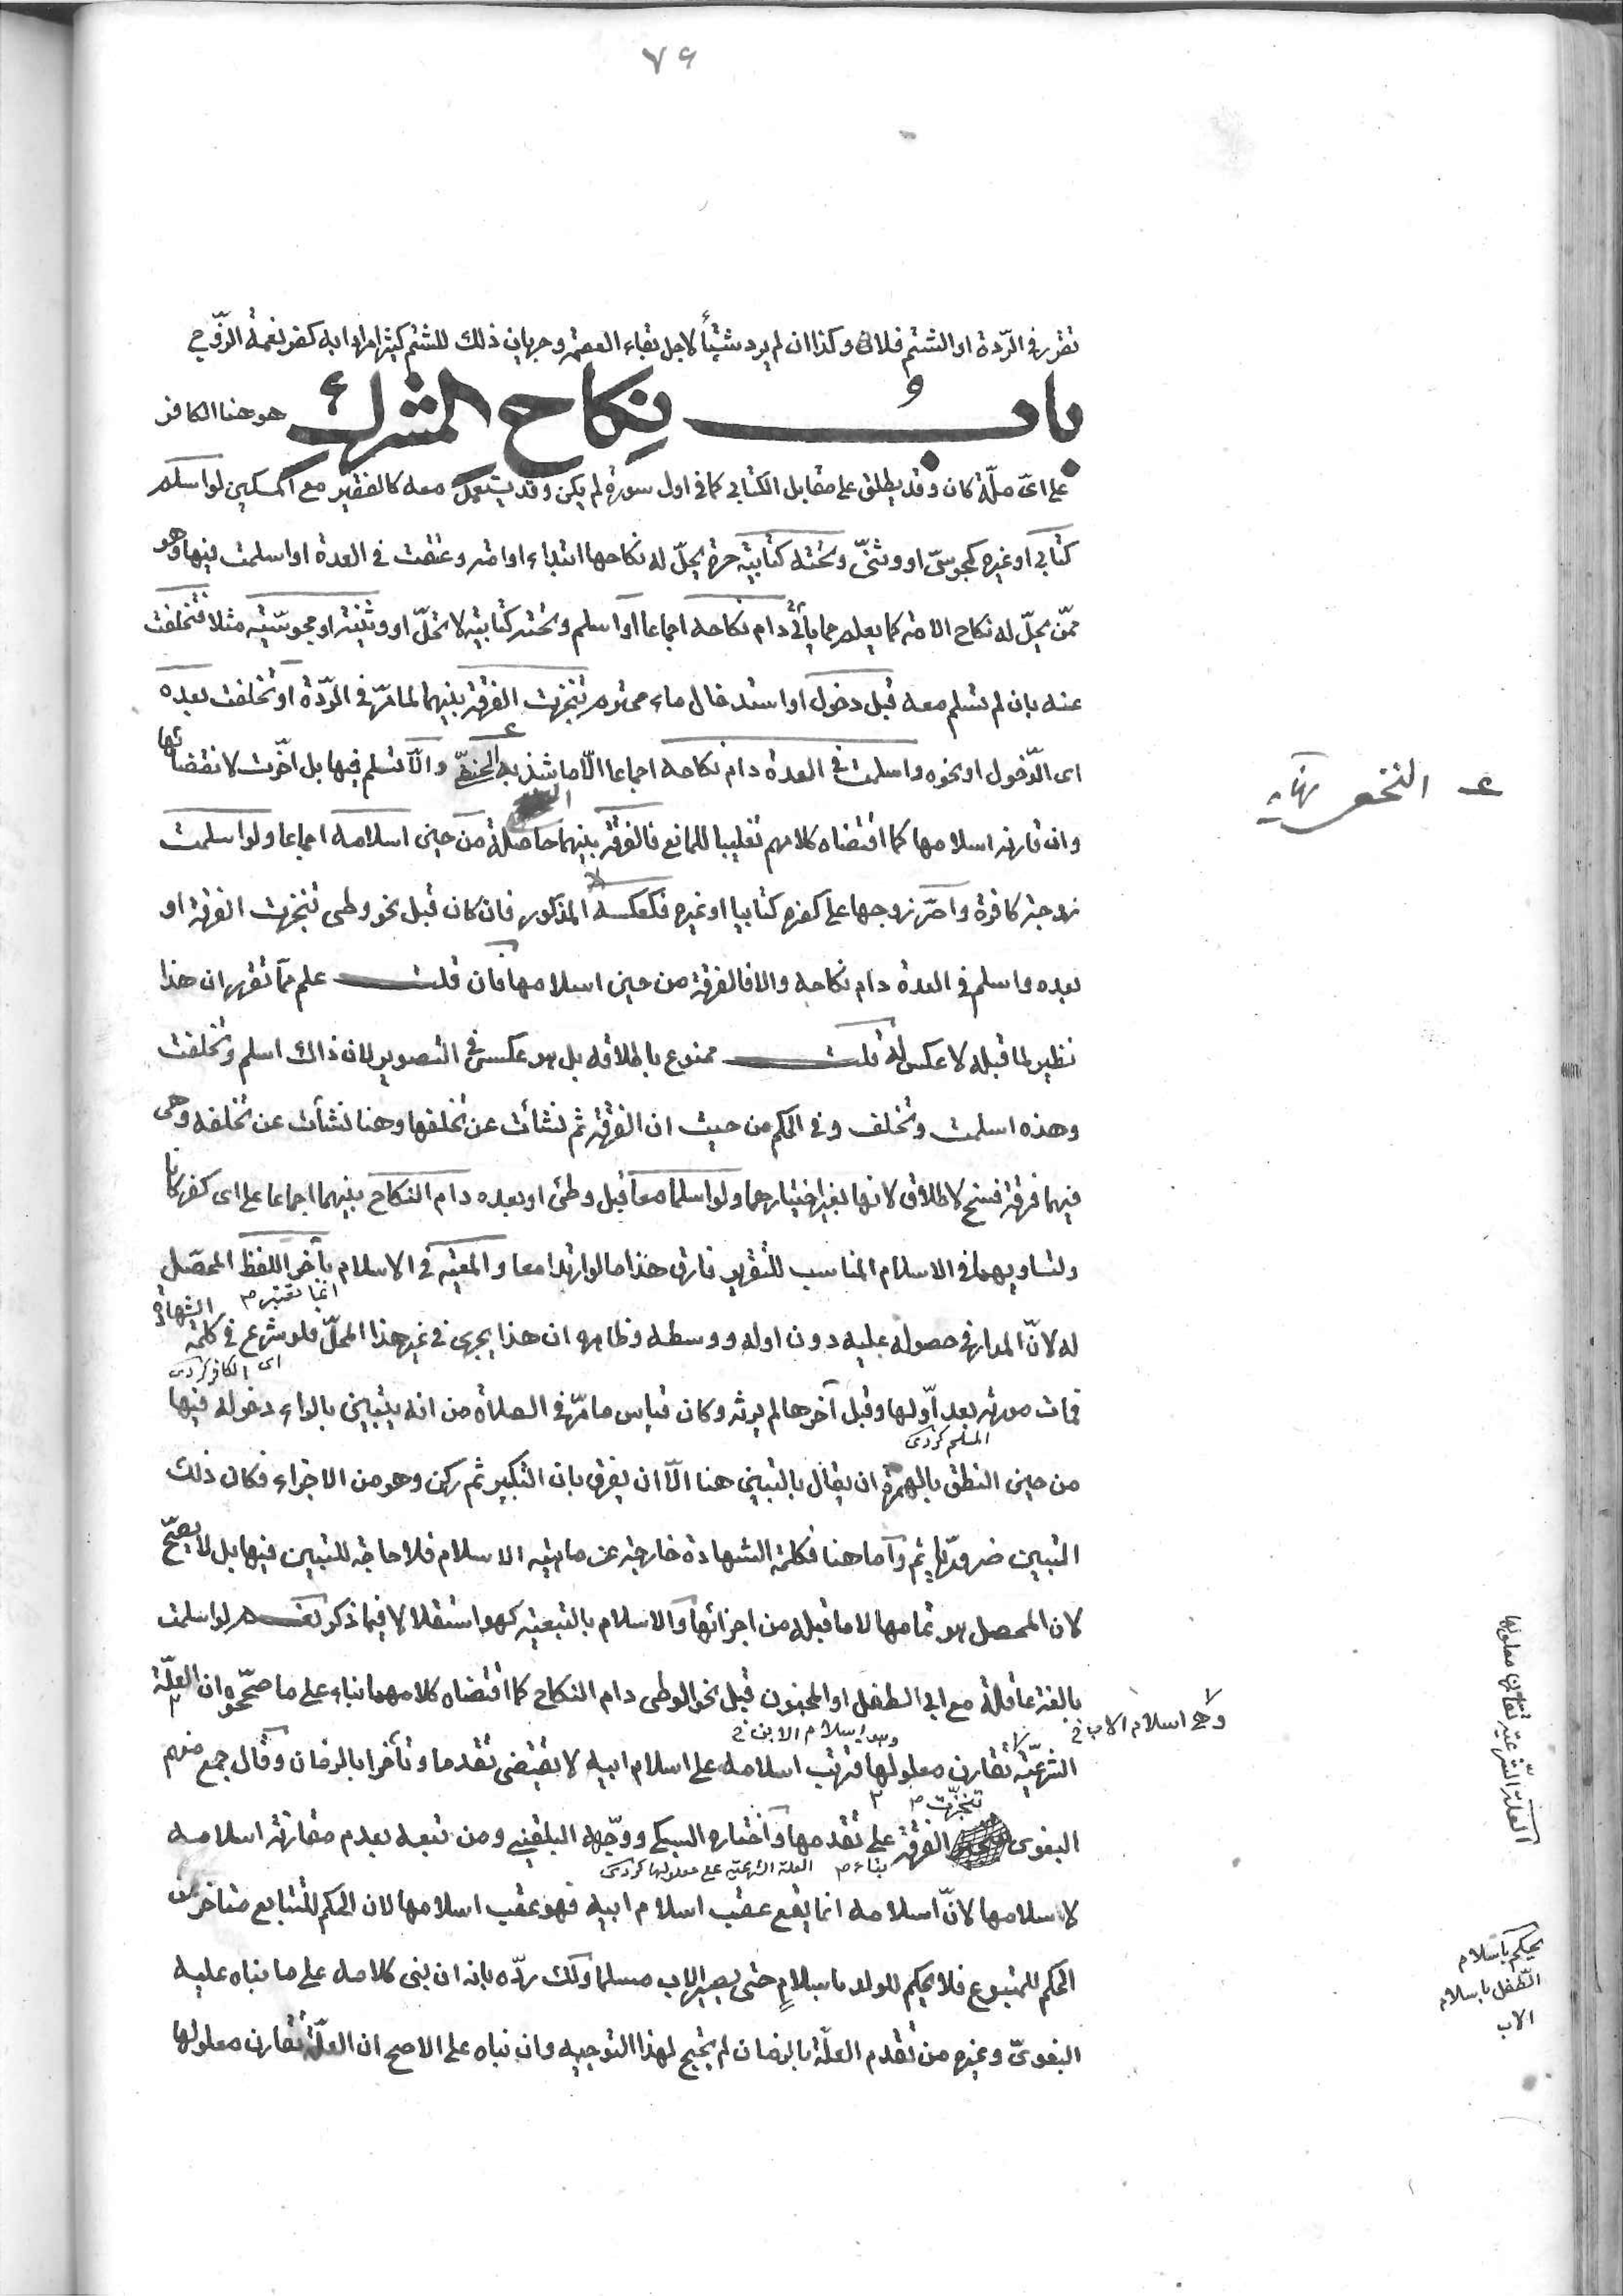 ٧٩
تقرر في الردة او الشتم فلا و كذا ان لم يرد شيئا لاجل بقاء العصمة وجريان ذلك للشتم كثيرا مرادا به كفر نعمة الزوج
بابُ نِكاح المشرك هو هنا الكافر
على اى ملّة كان وقد يطلق على مقابل الكتابي كما في اول سورة لم يكن وقد يستعمل معه كالفقير مع المسكين لو اسلم
كتابي او غيره كمجوسىّ او وثنىّ وتحته كتابية حرة يحلّ له نكاحها ابتداء او امة وعتقت في العدة او اسلمت فيها وهو
ممّن يحلّ له نكاح الامة كما يعلم مما يأتي دام نكاحه اجماعا او اسلم وتحته كتابية لا تحلّ او وثنية او مجوسيّة مثلا فتخلفت
عنه بان لم تسلم معه قبل دخول او استدخال ماء محترم تنجزت الفرقة بينهما لما مرّ في الردّة او تخلفت بعده
اى الدّخول او نحوه واسلمت في العدة دام نكاحه اجماعا الّا ما شذ به النخعىّ والّا تسلم فيها بل اخّرت لانقضائها
وان قارنه اسلامها كما اقتضاه كلامهم تغليبا للمانع فالفرقة بينهما حاصلة من حين اسلامه اجماعا ولو اسلمت
زوجة كافرة واصرّ زوجها على كفره كتابيا او غيره فكعكسه المذكور فان كان قبل نحو وطى تنجزت الفرقة او
بعده واسلم في العدة دام نكاحه والا فالفرقة من حين اسلامها فان قلت علم مما تقرر ان هذا
نظير لما قبله لا عكس له قلت ممنوع باطلاقه بل هو عكس في التصوير لان ذاك اسلم وتخلفت
وهذه اسلمت وتخلف وفي الحكم من حيث ان الفرقة ثم نشأت عن تخلفها وهنا نشأت عن تخلفه وهى
فيهما فرقة فسخ لا طلاق لانها بغير اختيارهما ولو اسلما معا قبل وطئ او بعده دام النكاح بينهما اجماعا على اى كفر كانا
ولتساويهما في الاسلام المناسب للتقرير فارق هذا ما لو ارتدا معا والمعية في الاسلام بآخر اللفظ المحصّل
انما تعتبر م
له لانّ المدار في حصوله عليه دون اوله ووسطه وظاهره ان هذا يجرى في غير هذا المحلّ فلو شرع في كلمة الشهادة
اى الكافر كردى
فمات مورثه بعد اوّلها وقبل آخرها لم يرثه وكان قياس ما مرّ في الصلاة من انه يتبين بالراء دخوله فيها
المسلم كردى
من حين النطق بالهمزة ان يقال بالتبين هنا الّا ان يفرق بان التكبير ثم ركن وهو من الاجزاء فكان ذلك
التبين ضروريّا ثم وأما هنا فكلمة الشهادة خارجة عن ماهية الاسلام فلا حاجة للتبين فيها بل لا يصحّ
لان المحصل هو تمامها لا ما قبله من اجزائها والاسلام بالتبعية كهو استقلالا فيما ذكر نعم لو اسلمت
بالغة عاقلة مع ابى الطفل او المجنون قبل نحو الوطى دام النكاح كما اقتضاه كلامهما بناء على ما صحّحوه ان العلّة
وهى اسلام الابن ف
الشرعيّة تقارن معلولها فترتب اسلامه على اسلام ابيه لا يقتضى تقدما وتأخرا بالزمان وقال جمع منهم
تنجّزت م
البغوى الفرقة على تقدمها واختاره السبكي ووجّهه البلقيني ومن تبعه بعدم مقارنة اسلامه
بناء م العلة الشرعية على معلولها كردى
لاسلامها لانّ اسلامه انما يقع عقب اسلام ابيه فهو عقب اسلامها لان الحكم للتابع متأخر عن
الحكم للمتبوع فلا يحكم للولد باسلامٍ حتى يصير الاب مسلما ولك ردّه بانه ان بنى كلامه على ما بناه عليه
البغوىّ وغيره من تقدم العلّة بالزمان لم يحتج لهذا التوجيه وان بناه على الاصح ان العلّة تقارن معلولها
ع النخعى نهاية
وهى اسلام الاب ف
العلة الشّرعيّة تقارن معلولها
يحكم باسلام
الطّفل باسلام
الاب